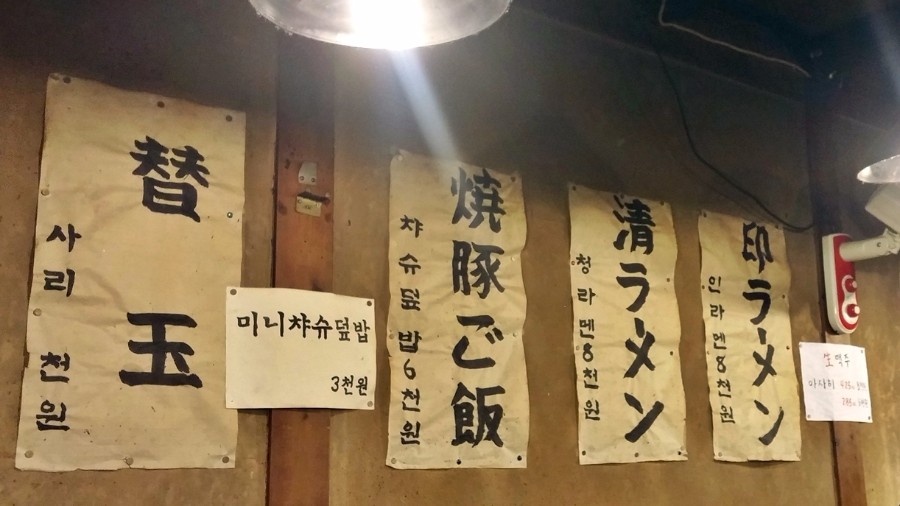 替玉
사리 천원
미니챠슈덮밥
3천원
焼豚ご飯
챠슈덮밥6천원
清ラーメン
청라멘8천원
印ラーメン
인라멘8천원
生맥주
아사히